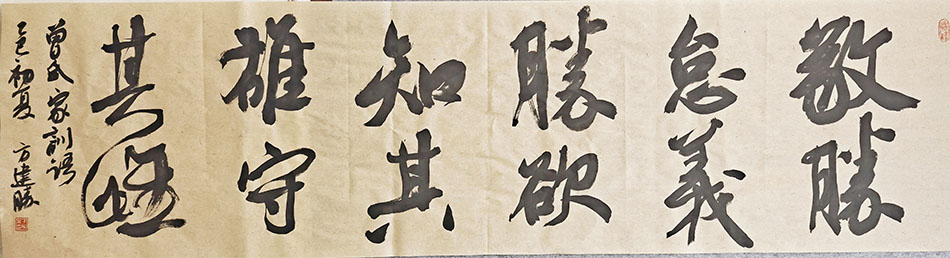 敬勝
怠義
勝欲
知其
雄守
其雌
曾氏家訓語
乙巳初夏 方建勝